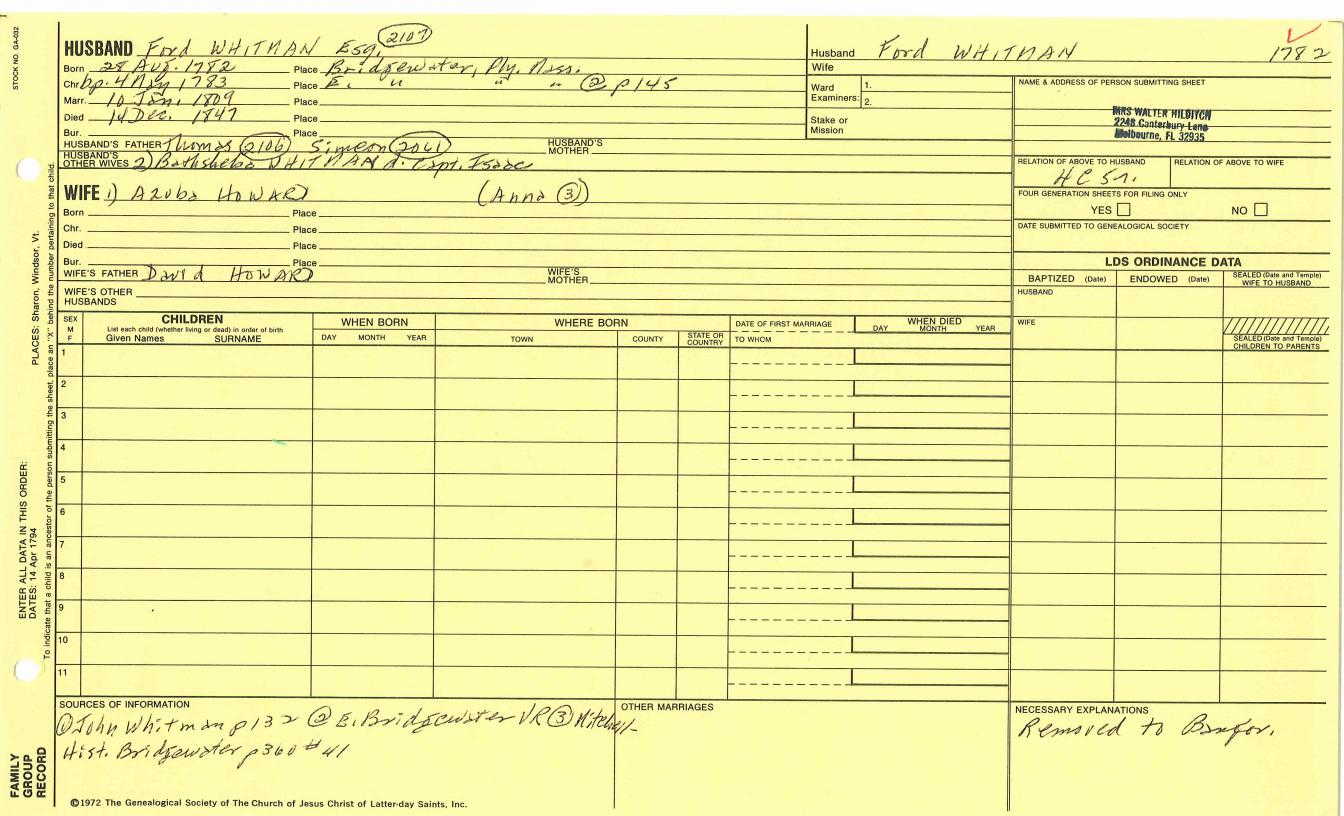 STOCK NO. GA-032
HUSBAND Ford WHITMAN Esq. 2107
Born 28 Aug. 1782 Place Bridgewater, Ply. Mass.
Chr. bp. 4 May 1783 Place E. " " ② p145
Marr. 10 Jan. 1809 Place
Died 14 Dec. 1847 Place
Bur. Place
HUSBAND'S FATHER Thomas (2106) Simeon (2061) HUSBAND'S MOTHER
HUSBAND'S OTHER WIVES 2) Bathsheba WHITMAN d. Capt. Isaac
WIFE 1) Azuba HOWARD (Anna ③)
Born Place
Chr. Place
Died Place
Bur. Place
WIFE'S FATHER David HOWARD WIFE'S MOTHER
WIFE'S OTHER HUSBANDS
Husband Ford WHITMAN 1782
Wife
Ward Examiners: 1.
2.
Stake or Mission
NAME & ADDRESS OF PERSON SUBMITTING SHEET
MRS WALTER HILDITCH
2248 Canterbury Lane
Melbourne, FL 32935
RELATION OF ABOVE TO HUSBAND RELATION OF ABOVE TO WIFE
FOUR GENERATION SHEETS FOR FILING ONLY
YES NO
DATE SUBMITTED TO GENEALOGICAL SOCIETY
LDS ORDINANCE DATA
BAPTIZED (Date) ENDOWED (Date) SEALED (Date and Temple) WIFE TO HUSBAND
HUSBAND
WIFE
SEALED (Date and Temple) CHILDREN TO PARENTS
SEX M F
CHILDREN
List each child (whether living or dead) in order of birth
Given Names SURNAME
WHEN BORN
DAY MONTH YEAR
WHERE BORN
TOWN COUNTY STATE OR COUNTRY
DATE OF FIRST MARRIAGE
TO WHOM
WHEN DIED
DAY MONTH YEAR
1
2
3
4
5
6
7
8
9
10
11
SOURCES OF INFORMATION
① John Whitman p132 ② E. Bridgewater VR ③ Mitchell-
Hist. Bridgewater p360 #41
OTHER MARRIAGES
NECESSARY EXPLANATIONS
Removed to Bangor.
©1972 The Genealogical Society of The Church of Jesus Christ of Latter-day Saints, Inc.
FAMILY GROUP RECORD
ENTER ALL DATA IN THIS ORDER:
DATES: 14 Apr 1794
PLACES: Sharon, Windsor, Vt.
To indicate that a child is an ancestor of the person submitting the sheet, place an "X" behind the number pertaining to that child.